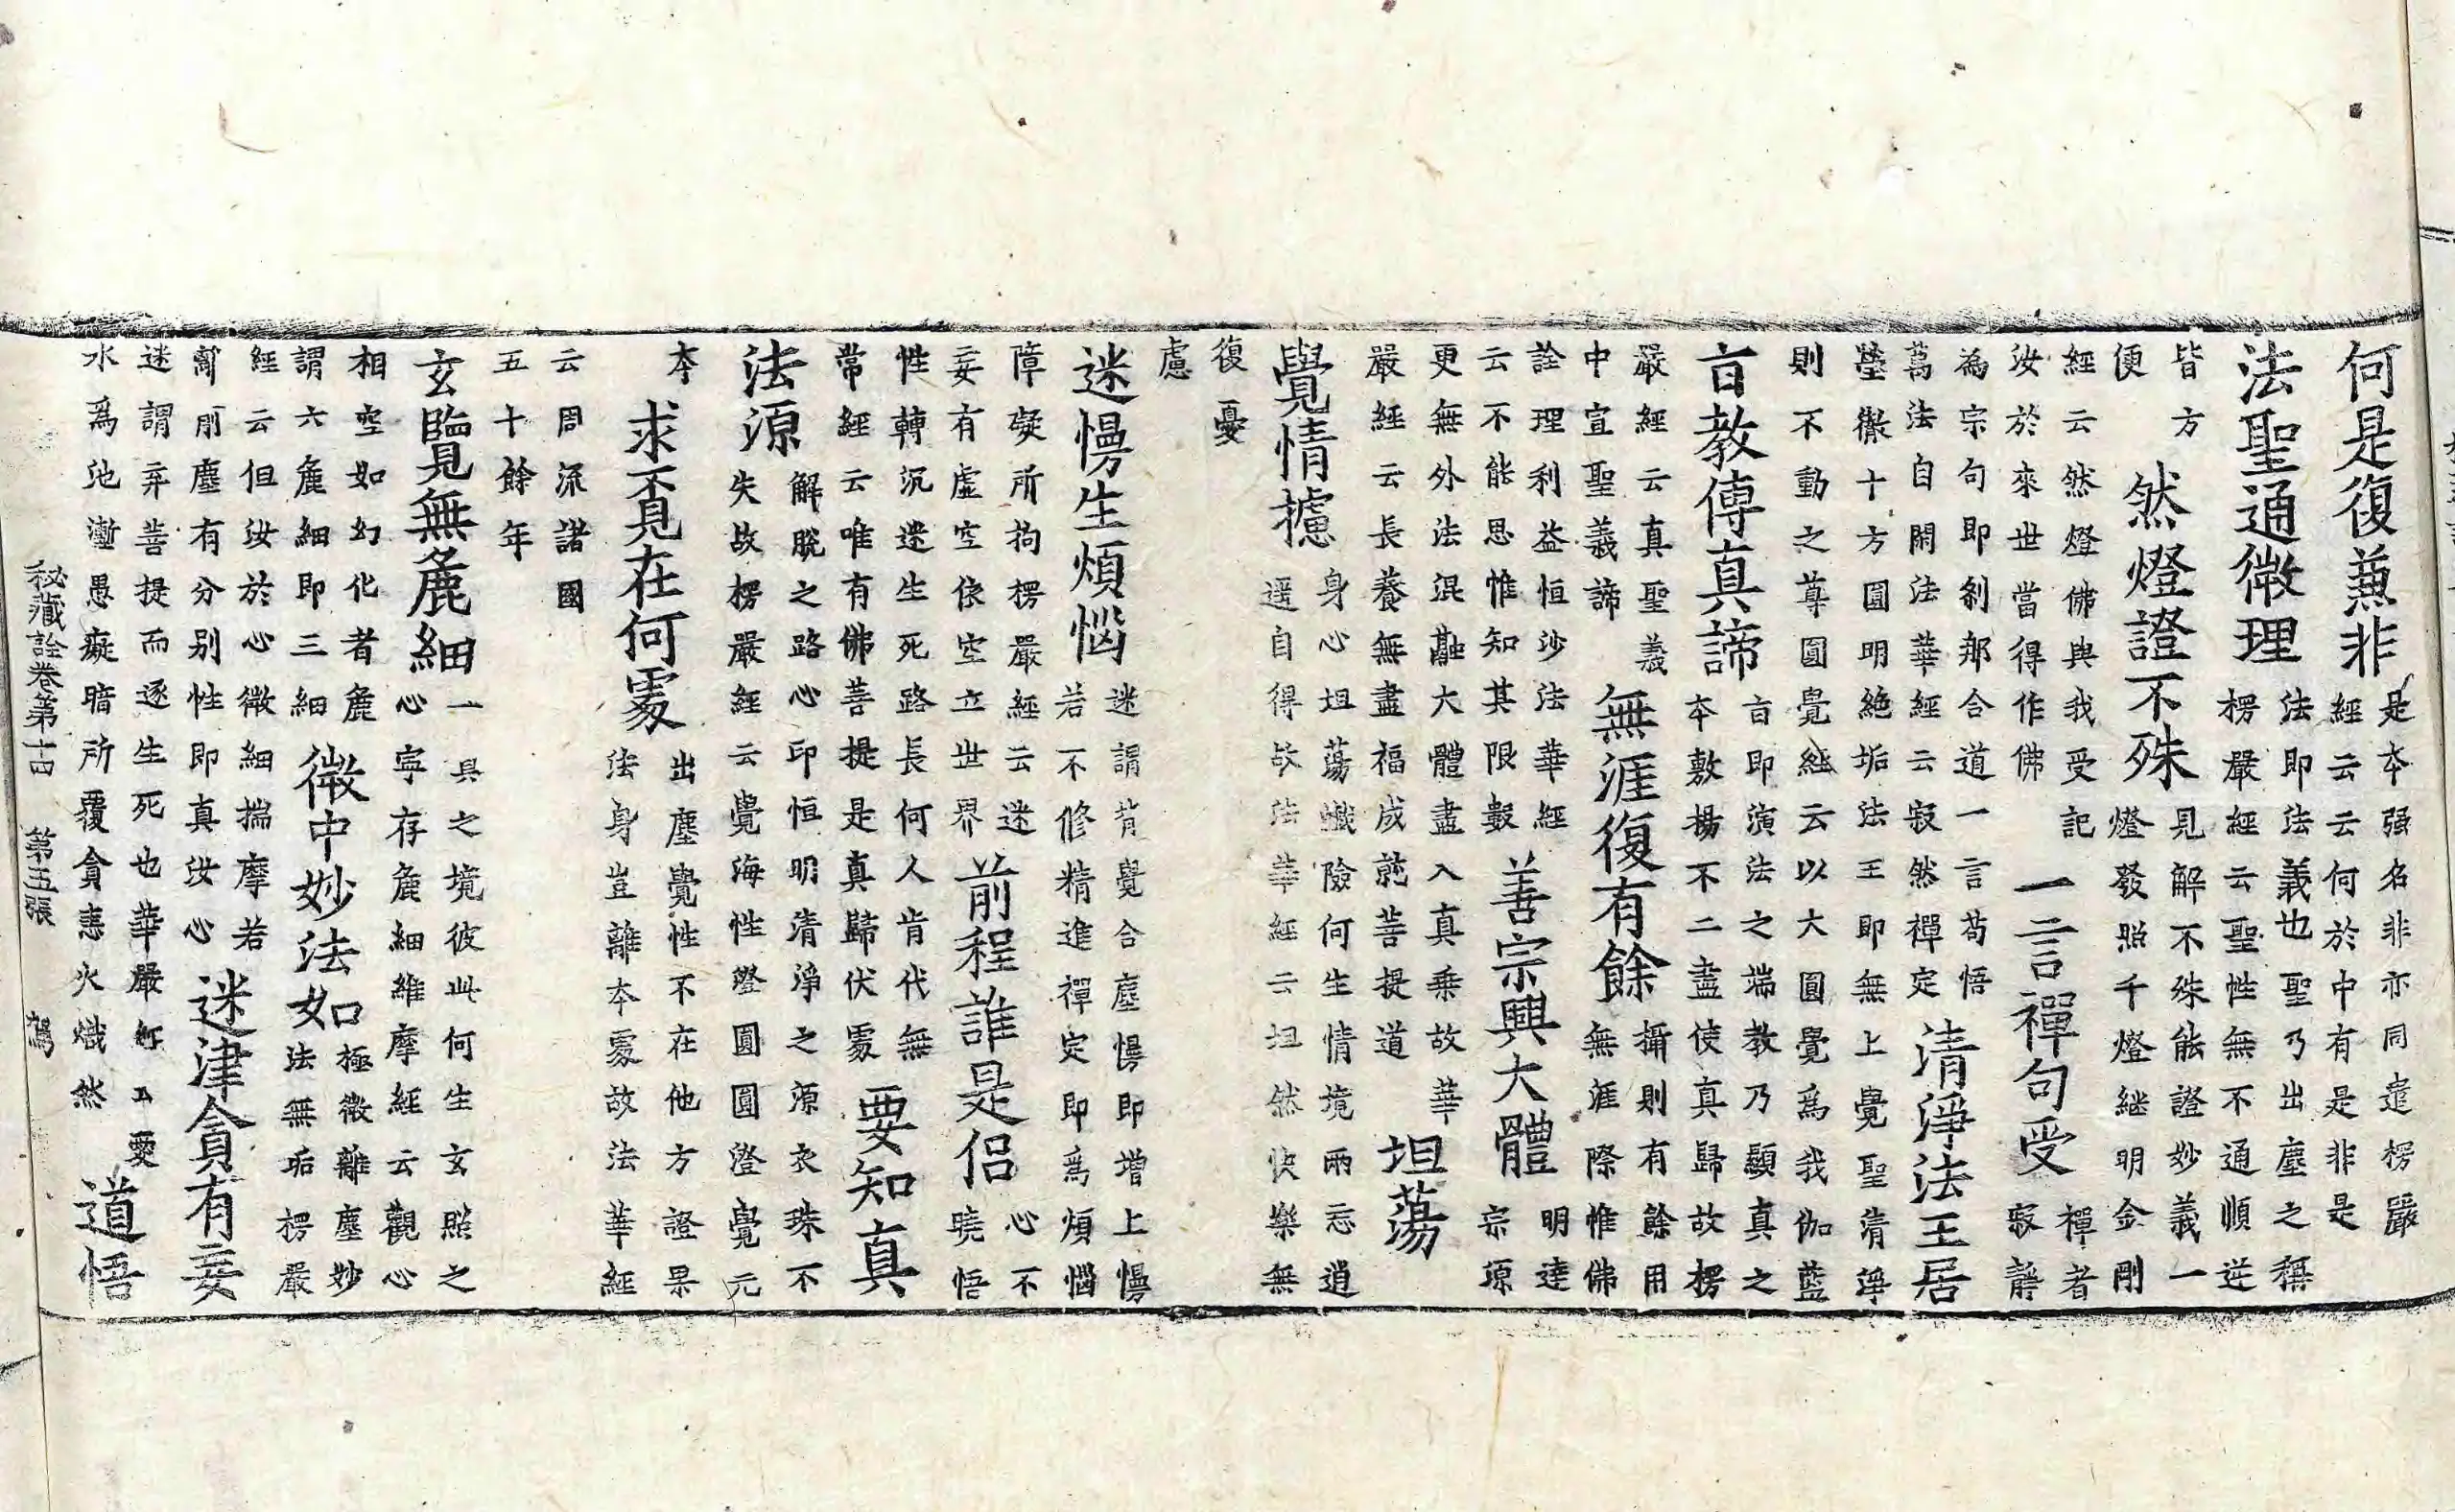 何是復兼非
是本强名非亦同遣楞嚴
經云何於中有是非是
法聖通微理
法即法義也聖乃出塵之稱
楞嚴經云聖性無不通順逆
皆方
便
然燈證不殊
見解不殊能證妙義一
燈發照千燈継明金剛
經云然燈佛與我受記
汝於來世當得作佛
一言禪句受
禪者
寂靜
為宗句即剎那合道一言苟悟
萬法自開法華經云寂然禪定
清淨法王居
瑩徹十方圓明絶垢法王即無上覺聖清淨
則不動之尊圓覺經云以大圓覺爲我伽藍
言教傳真諦
言即演法之端教乃顯真之
本敷揚不二盡使真歸故楞
嚴經云真聖義
中宣聖義諦
無涯復有餘
攝則有餘用
無涯際惟佛
詮理利益恒沙法華經
云不能思惟知其限數
善宗興大體
明達
宗源
更無外法混融大體盡入真乗故華
嚴經云長養無盡福成就菩提道
坦蕩
覺情攄
身心坦蕩險何生情境兩忘逍
遥自得故法華經云坦然快樂無
復憂
慮
迷慢生煩惱
迷謂背覺合塵慢即增上慢
若不修精進禪定即爲煩惱
障礙所拘楞嚴經云迷
妄有虛空依空立世界
前程誰是侶
心不
曉悟
性轉沉迷生死路長何人肯代無
常經云唯有佛菩提是真歸伏處
要知真
法源
解脫之路心印恒明清淨之源衣珠不
失故楞嚴經云覺海性澄圓圓澄覺元
本
求覓在何處
出塵覺性不在他方證果
法身豈離本處故法華經
云周流諸國
五十餘年
玄覽無麁細
一具之境彼此何生玄照之
心寧存麁細維摩經云觀心
相空如幻化者麁
謂六麁細即三細
微中妙法如
極微離塵妙
法無垢楞嚴
經云但汝於心微細揣摩若
離前塵有分别性即真汝心
迷津貪有妄
迷謂弃菩提而逐生死也華嚴經云愛
水爲池壍愚癡暗所覆貪恚火熾然
道悟
秘藏詮卷第十四 第五張